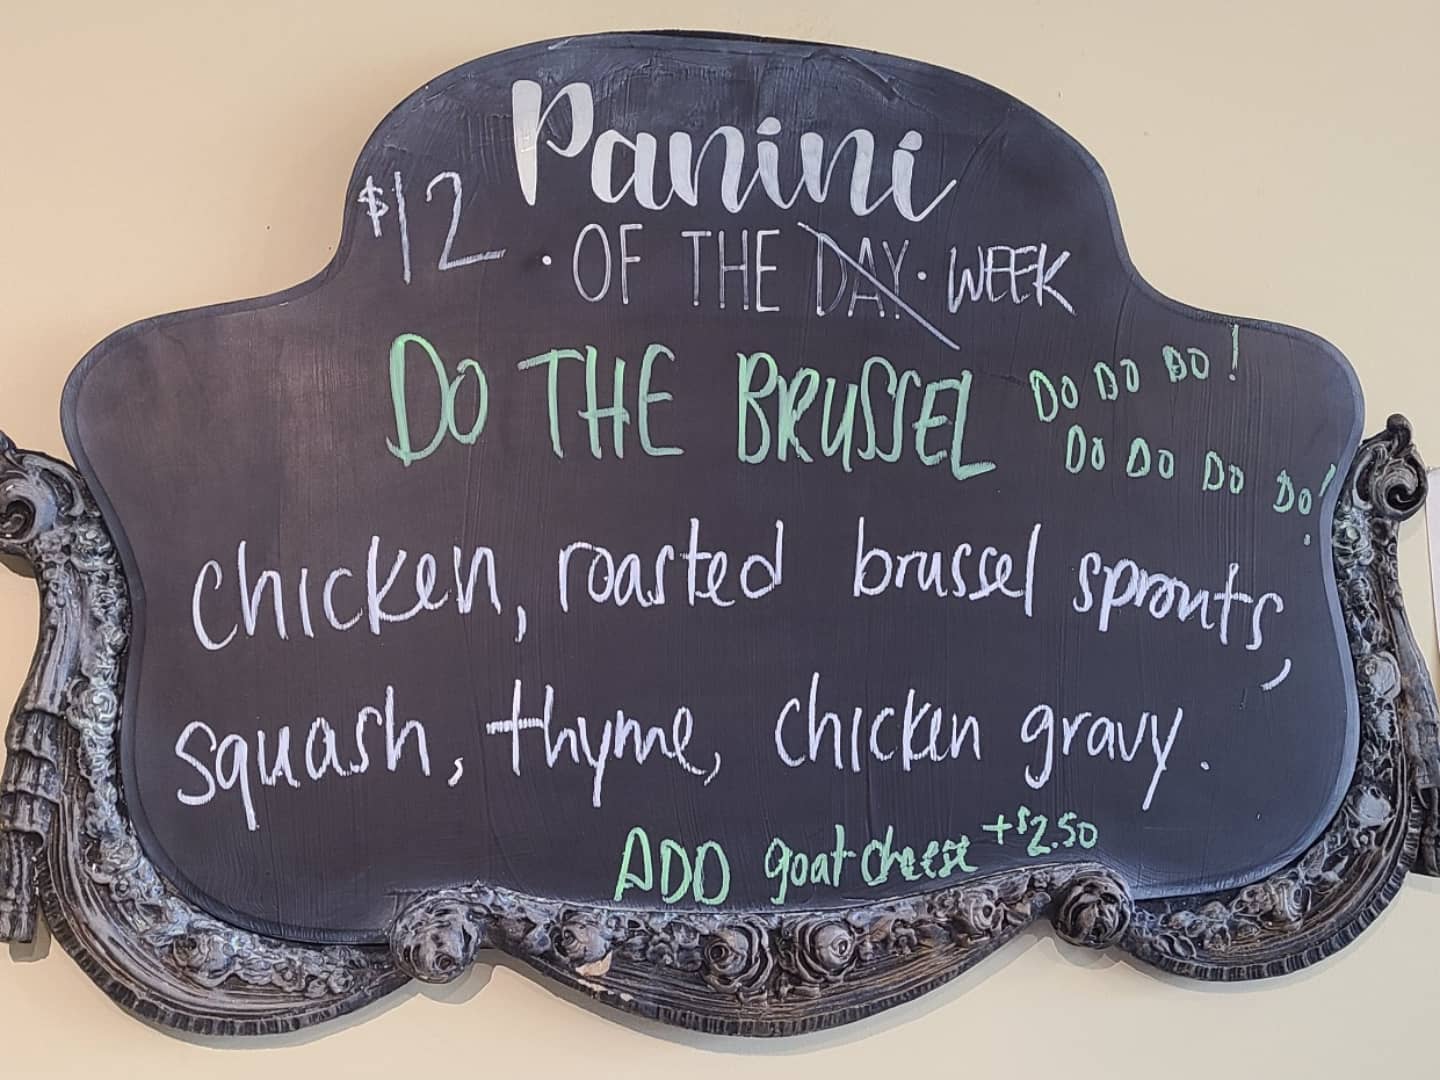 Panini
$12 · OF THE DAY · WEEK
DO THE BRUSSEL DO DO DO!
DO DO DO DO!
chicken, roasted brussel sprouts,
squash, thyme, chicken gravy.
ADD goat cheese +$2.50